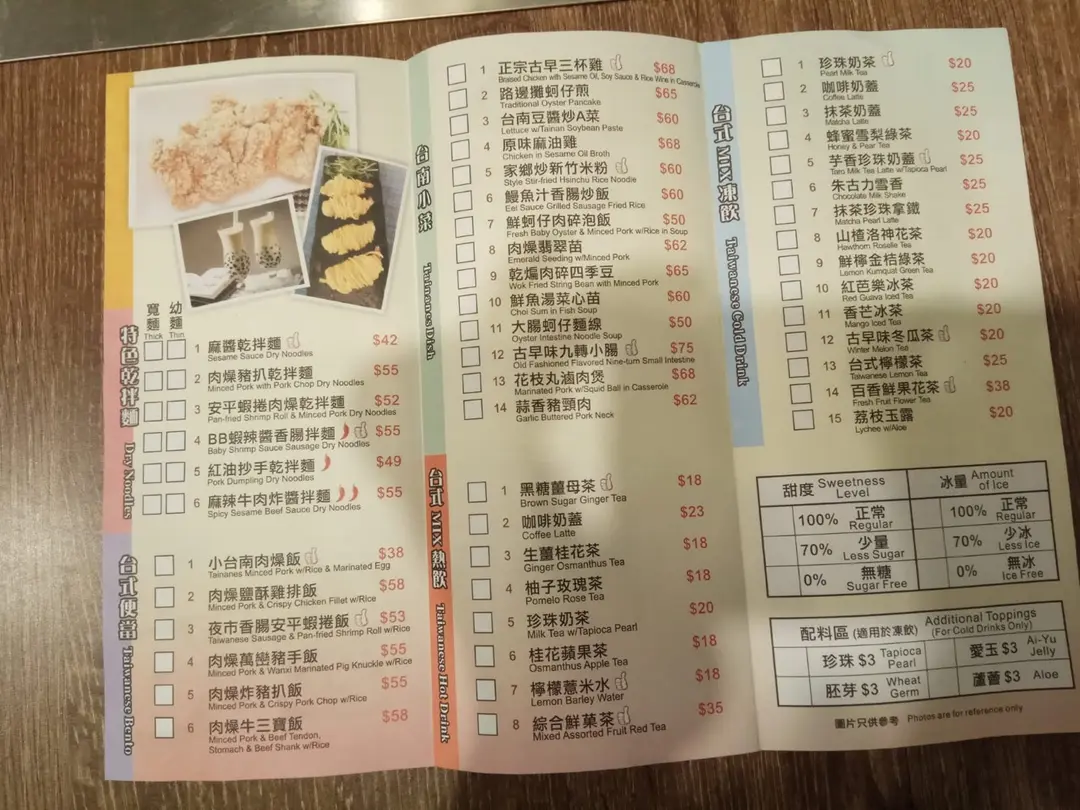 寬麵 幼麵
Thick Thin
特色乾拌麵 Dry Noodles
1 麻醬乾拌麵 $42
Sesame Sauce Dry Noodles
2 肉燥豬扒乾拌麵 $55
Minced Pork with Pork Chop Dry Noodles
3 安平蝦捲肉燥乾拌麵 $52
Pan-fried Shrimp Roll & Minced Pork Dry Noodles
4 BB蝦辣醬香腸拌麵 $55
Baby Shrimp Sauce Sausage Dry Noodles
5 紅油抄手乾拌麵 $49
Pork Dumpling Dry Noodles
6 麻辣牛肉炸醬拌麵 $55
Spicy Sesame Beef Sauce Dry Noodles
台式便當 Taiwanese Bento
1 小台南肉燥飯 $38
Tainanes Minced Pork w/Rice & Marinated Egg
2 肉燥鹽酥雞排飯 $58
Minced Pork & Crispy Chicken Fillet w/Rice
3 夜市香腸安平蝦捲飯 $53
Taiwanese Sausage & Pan-fried Shrimp Roll w/Rice
4 肉燥萬巒豬手飯 $55
Minced Pork & Wanxi Marinated Pig Knuckle w/Rice
5 肉燥炸豬扒飯 $55
Minced Pork & Crispy Pork Chop w/Rice
6 肉燥牛三寶飯 $58
Minced Pork & Beef Tendon,
Stomach & Beef Shank w/Rice
台南小菜 Tainanes Dish
1 正宗古早三杯雞 $68
Braised Chicken with Sesame Oil, Soy Sauce & Rice Wine in Casserole
2 路邊攤蚵仔煎 $65
Traditional Oyster Pancake
3 台南豆醬炒A菜 $60
Lettuce w/Tainan Soybean Paste
4 原味麻油雞 $68
Chicken in Sesame Oil Broth
5 家鄉炒新竹米粉 $60
Style Stir-fried Hsinchu Rice Noodle
6 鰻魚汁香腸炒飯 $60
Eel Sauce Grilled Sausage Fried Rice
7 鮮蚵仔肉碎泡飯 $50
Fresh Baby Oyster & Minced Pork w/Rice in Soup
8 肉燥翡翠苗 $62
Emerald Seeding w/Minced Pork
9 乾煸肉碎四季豆 $65
Wok Fried String Bean with Minced Pork
10 鮮魚湯菜心苗 $60
Choi Sum in Fish Soup
11 大腸蚵仔麵線 $50
Oyster Intestine Noodle Soup
12 古早味九轉小腸 $75
Old Fashioned Flavored Nine-turn Small Intestine
13 花枝丸滷肉煲 $68
Marinated Pork w/Squid Ball in Casserole
14 蒜香豬頸肉 $62
Garlic Buttered Pork Neck
台式MIX熱飲 Taiwanese Hot Drink
1 黑糖薑母茶 $18
Brown Sugar Ginger Tea
2 咖啡奶蓋 $23
Coffee Latte
3 生薑桂花茶 $18
Ginger Osmanthus Tea
4 柚子玫瑰茶 $18
Pomelo Rose Tea
5 珍珠奶茶 $20
Milk Tea w/Tapioca Pearl
6 桂花蘋果茶 $18
Osmanthus Apple Tea
7 檸檬薏米水 $18
Lemon Barley Water
8 綜合鮮菓茶 $35
Mixed Assorted Fruit Red Tea
台式MIX凍飲 Taiwanese Cold Drink
1 珍珠奶茶 $20
Pearl Milk Tea
2 咖啡奶蓋 $25
Coffee Latte
3 抹茶奶蓋 $25
Matcha Latte
4 蜂蜜雪梨綠茶 $20
Honey & Pear Tea
5 芋香珍珠奶蓋 $25
Taro Milk Tea Latte w/Tapioca Pearl
6 朱古力雪香 $25
Chocolate Milk Shake
7 抹茶珍珠拿鐵 $25
Matcha Pearl Latte
8 山楂洛神花茶 $20
Hawthorn Roselle Tea
9 鮮檸金桔綠茶 $20
Lemon Kumquat Green Tea
10 紅芭樂冰茶 $20
Red Guava Iced Tea
11 香芒冰茶 $20
Mango Iced Tea
12 古早味冬瓜茶 $20
Winter Melon Tea
13 台式檸檬茶 $25
Taiwanese Lemon Tea
14 百香鮮果花茶 $38
Fresh Fruit Flower Tea
15 荔枝玉露 $20
Lychee w/Aloe
甜度 Sweetness Level 冰量 Amount of Ice
100% 正常 Regular 100% 正常 Regular
70% 少量 Less Sugar 70% 少冰 Less Ice
0% 無糖 Sugar Free 0% 無冰 Ice Free
配料區 (適用於凍飲) Additional Toppings (For Cold Drinks Only)
珍珠 $3 Tapioca Pearl 愛玉 $3 Ai-Yu Jelly
胚芽 $3 Wheat Germ 蘆薈 $3 Aloe
圖片只供參考 Photos are for reference only